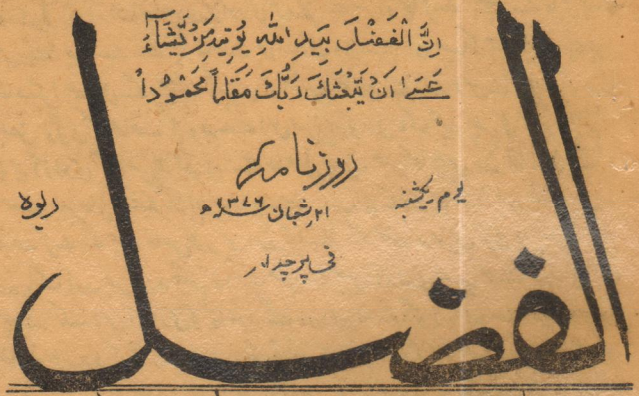 اِنَّ الْفَضْلَ بِيَدِ اللهِ يُؤتِيهِ مَنْ يَّشَآءُ
عَسٰے اَنْ يَّبْعَثَكَ رَبُّكَ مَقَامًا مَّحْمُوْدًا
روزنامہ
یوم یکشنبہ
۲۱؍شعبان ۱۳۷۶ھ
ربوہ
فی پرچہ ۱؍
الفضل